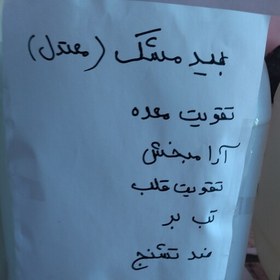 بید مشک (معتدل)
تقویت معده
آرامبخش
تقویت قلب
تب بر
ضد تشنج